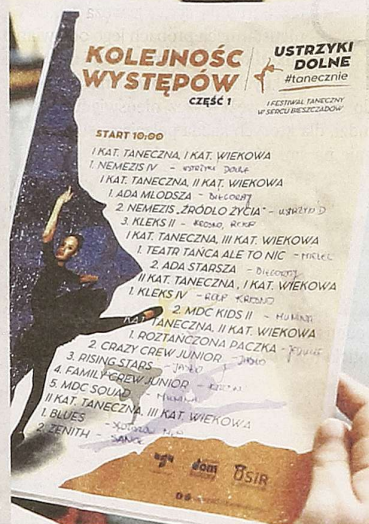 KOLEJNOŚĆ
WYSTĘPÓW
CZĘŚĆ 1
USTRZYKI
DOLNE
#tanecznie
I FESTIWAL TANECZNY
W SERCU BIESZCZADÓW
START 10:00
I KAT. TANECZNA, I KAT. WIEKOWA
1. NEMEZIS IV - USTRZYKI DOLNE
I KAT. TANECZNA, II KAT. WIEKOWA
1. ADA MŁODSZA - BIŁGORAJ
2. NEMEZIS „ŹRÓDŁO ŻYCIA" - USTRZYKI D
3. KLEKS II - KROSNO, RCKP
I KAT. TANECZNA, III KAT. WIEKOWA
1. TEATR TAŃCA ALE TO NIC - MIELEC
2. ADA STARSZA - BIŁGORAJ
II KAT. TANECZNA, I KAT. WIEKOWA
1. KLEKS IV - RCKP KROSNO
2. MDC KIDS II -
KAT. TANECZNA, II KAT. WIEKOWA
1. ROZTAŃCZONA PACZKA -
2. CRAZY CREW JUNIOR - JASŁO
3. RISING STARS - JASŁO
4. FAMILY CREW JUNIOR -
5. MDC SQUAD
II KAT. TANECZNA, III KAT. WIEKOWA
1. BLUES -
2. ZENITH - SANOK
dom
OSiR